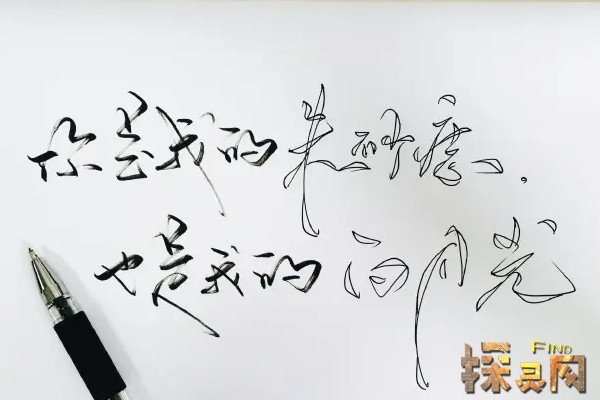 你是我的朱砂痣.
也是我的白月光
FIND
探灵网